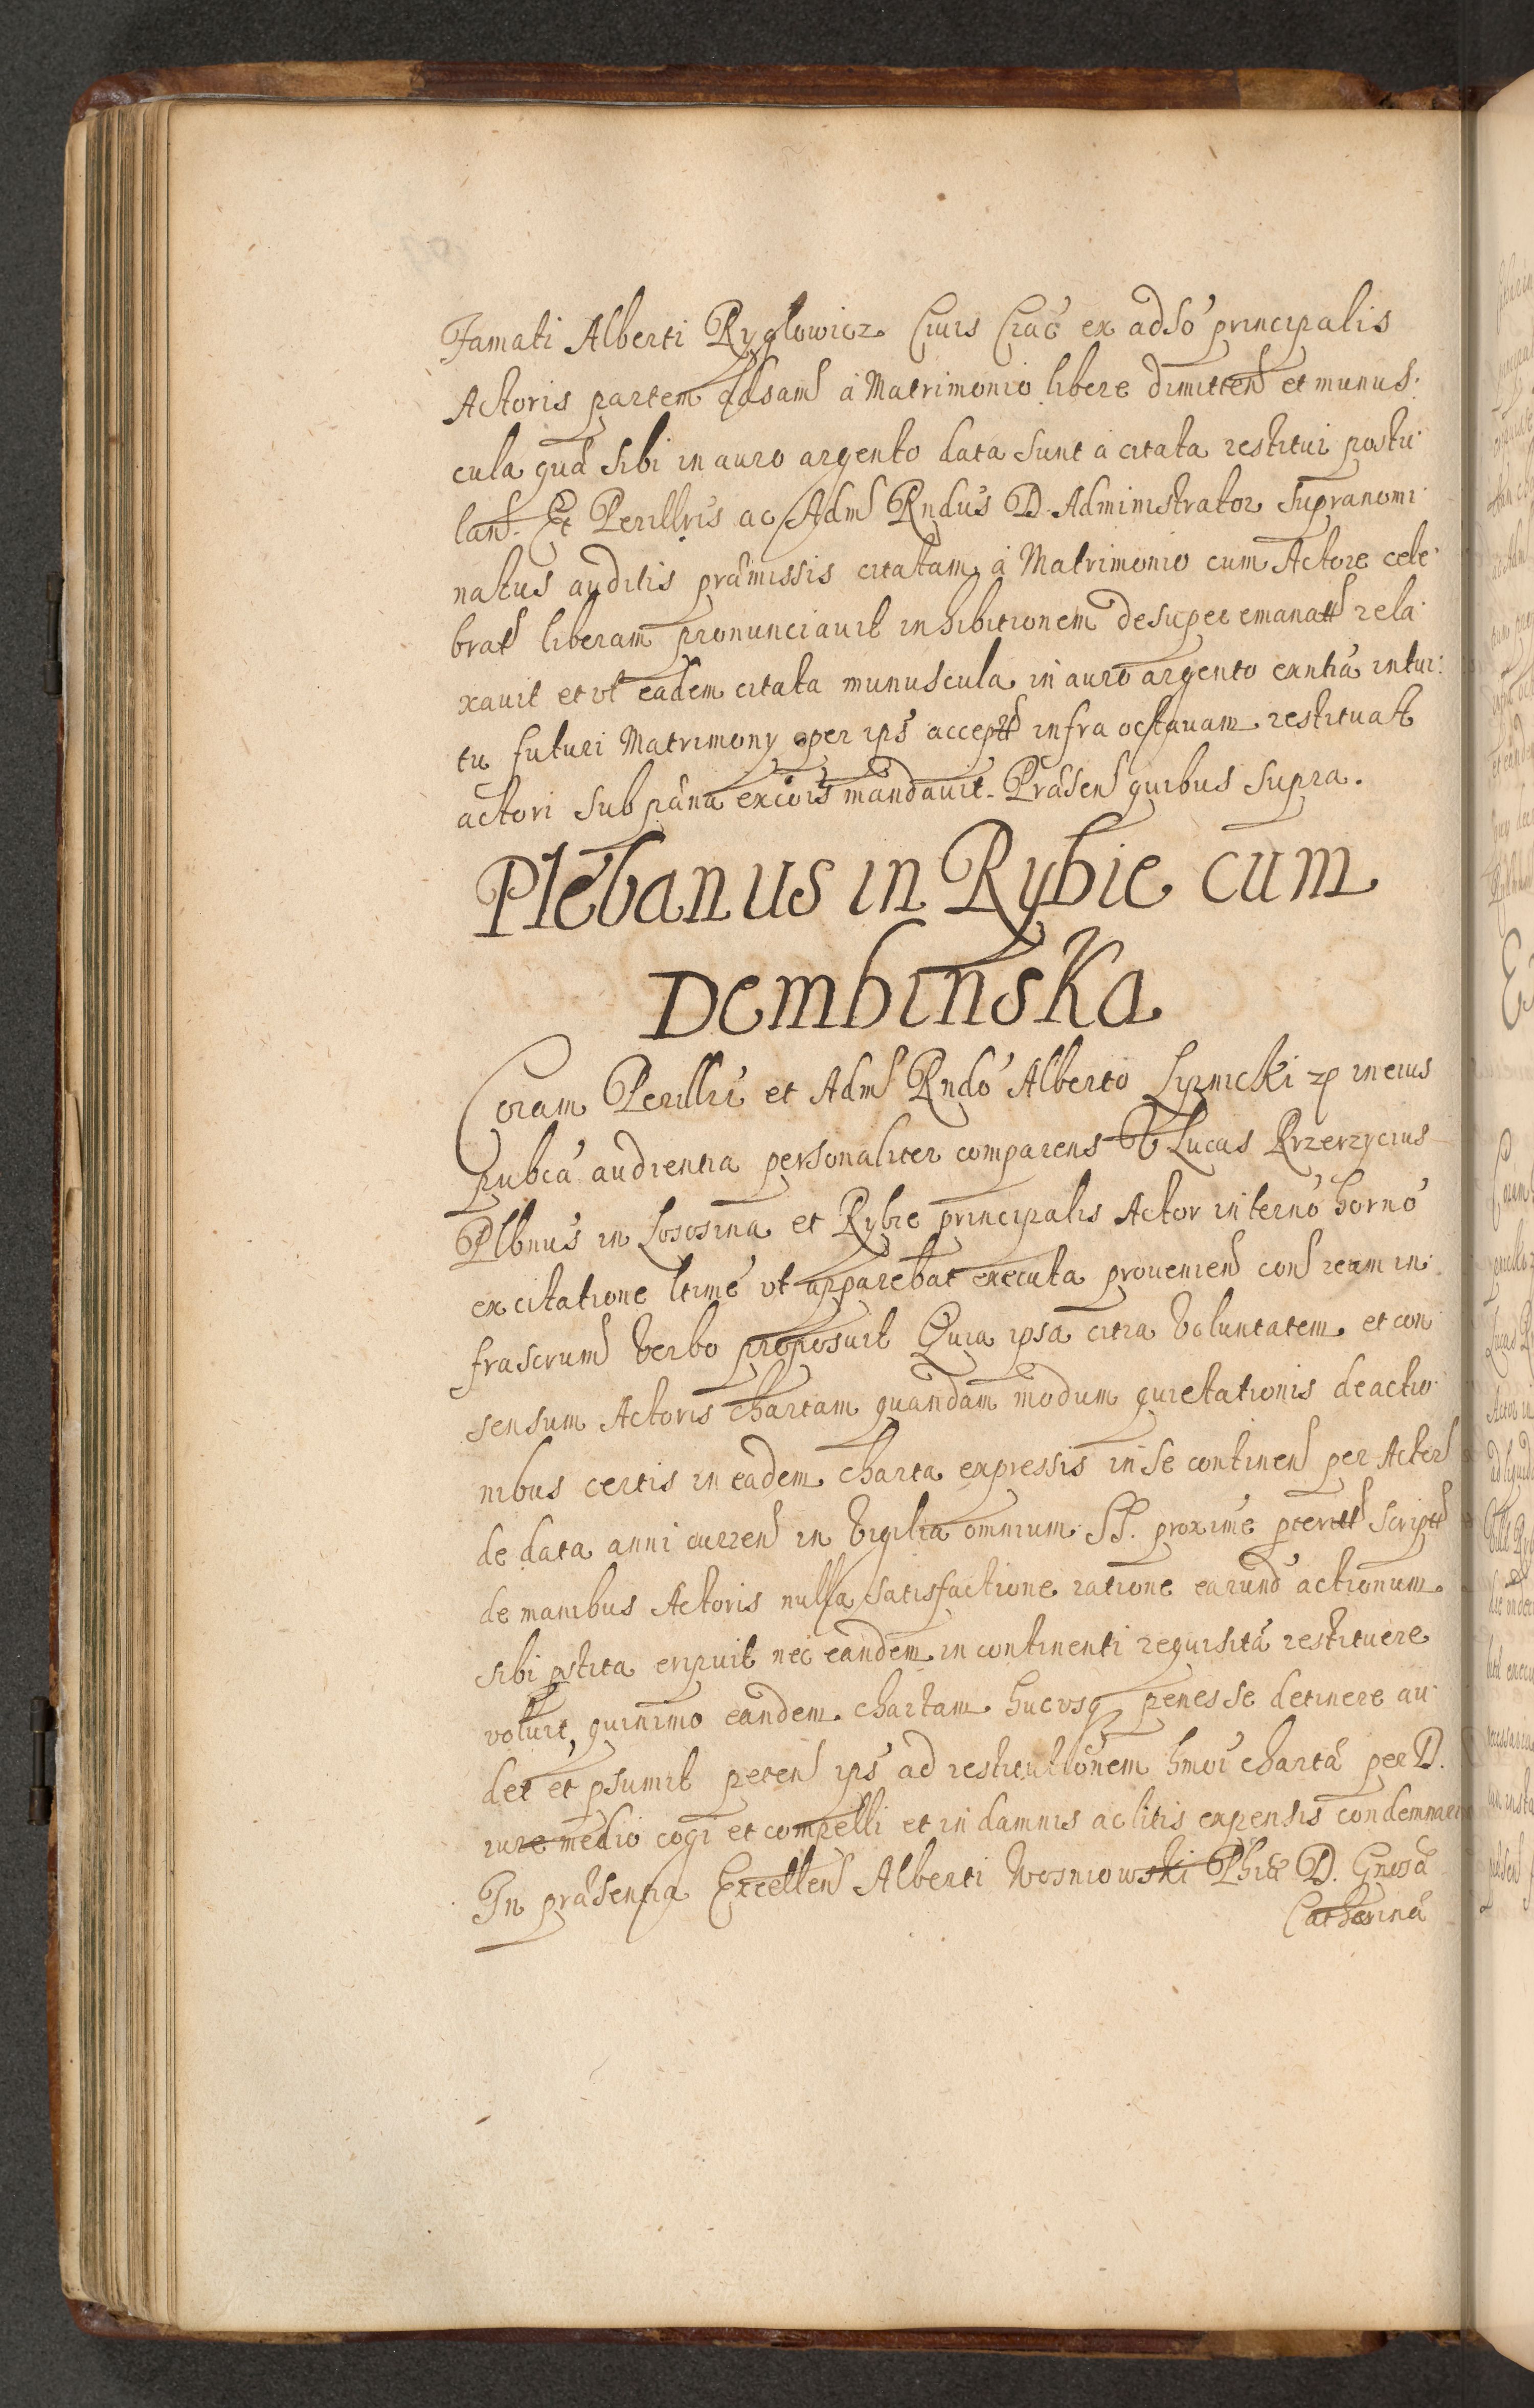 Famati Alberti Ryglowicz Ciuis Crac̃ ex adsó principalis
Actoris partem adsam̃ à Matrimonio libere dimitteñ et munus
cula quá sibi in auro argento data sunt à citata restitui postu
lañ. Et Perillris ac Adm̃ Rndus D. Administrator supranomi
natus auditis prámissis citatam à Matrimonio cum Actore cele
brat̃ liberam pronunciauit inhibitionem desuper emanatt̃ rela
xauit et vt eadem citata munuscula in auro argento exntia intui
tu futuri Matrimony per ips̃ acceptt̃ infra octauam restituat
actori sub pána excõis mandauit. Práseñ quibus supra.
Plebanus in Rybie cum
Dembinska
Coram Perillri et Adm̃ Rndó Alberto Lipnicki zp in eius
pubca audientia personaliter comparens V Lucas Przerzycius
Plbnus in Lososina et Rybie principalis Actor in terno horno
ex citatione ltimé vt apparebat executa proueniẽ con ream in
frascrum̃ verbo proposuit Quia ipsa citra Voluntatem et con
sensum Actoris chartam quandam modum quietationis de actio
nibus certis in eadem charta expressis in se contineñ per Actoꝛ̃
de data anni curreñ in Vigilia omnium SS. proximé pteritt̃ scriptt̃
de manibus Actoris nulla satisfactione ratione earund̃ actionum
sibi pstita eripuit nec eandem in continenti requisita restituere
voluit, quinimo eandem chartam hucvsq̃ penes se detinere au
det et psumit peteñ ips̃ ad restitutionem hmõi chartá per D.
iure medio cogi et compelli et in damnis ac litis expensis condemnari
In prásentia Excelleñ Alberti Wosniowski Phiæ D. Gnosá
Cathariná